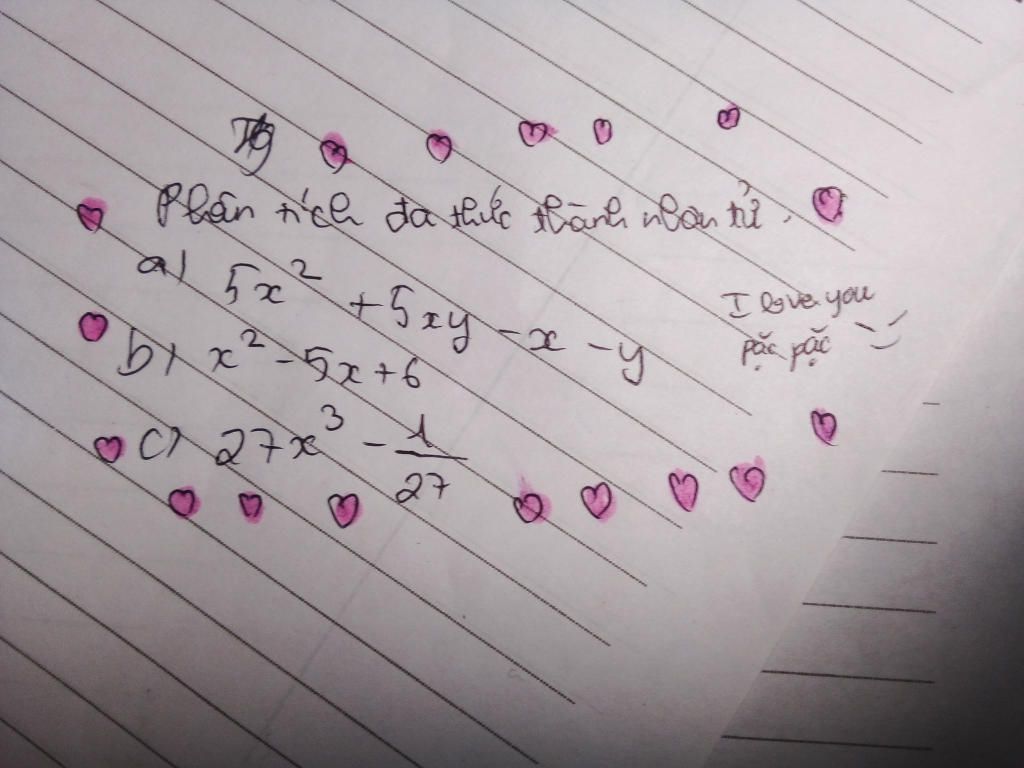 Phân tích đa thức thành nhân tử.
a) 5x² + 5xy - x - y
b) x² - 5x + 6
c) 27x³ - 1/27
I love you
pặc pặc